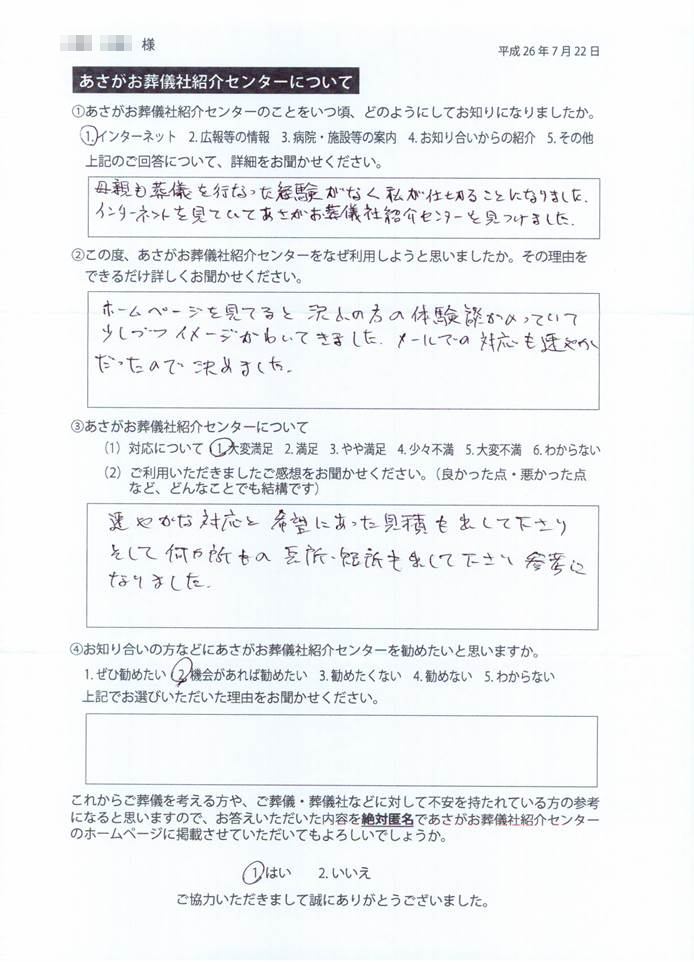 様
平成26年7月22日
あさがお葬儀社紹介センターについて
①あさがお葬儀社紹介センターのことをいつ頃、どのようにしてお知りになりましたか。
1.インターネット 2.広報等の情報 3.病院・施設等の案内 4.お知り合いからの紹介 5.その他
上記のご回答について、詳細をお聞かせください。
母親も葬儀を行なった経験がなく私が仕切ることになりました.
インターネットを見ていてあさがお葬儀社紹介センターを見つけました.
②この度、あさがお葬儀社紹介センターをなぜ利用しようと思いましたか。その理由を
できるだけ詳しくお聞かせください。
ホームページを見てると沢山の方の体験談がのっていて
少しづつイメージがわいてきました.メールでの対応も速やか
だったので決めました.
③あさがお葬儀社紹介センターについて
(1) 対応について 1.大変満足 2.満足 3.やや満足 4.少々不満 5.大変不満 6.わからない
(2) ご利用いただきましたご感想をお聞かせください。(良かった点・悪かった点
など、どんなことでも結構です)
速やかな対応と希望にあった見積も出して下さり
そして何カ所もの長所・短所も出して下さり参考に
なりました.
④お知り合いの方などにあさがお葬儀社紹介センターを勧めたいと思いますか。
1.ぜひ勧めたい 2.機会があれば勧めたい 3.勧めたくない 4.勧めない 5.わからない
上記でお選びいただいた理由をお聞かせください。
これからご葬儀を考える方や、ご葬儀・葬儀社などに対して不安を持たれている方の参考
になると思いますので、お答えいただいた内容を絶対匿名であさがお葬儀社紹介センター
のホームページに掲載させていただいてもよろしいでしょうか。
1.はい 2.いいえ
ご協力いただきまして誠にありがとうございました。